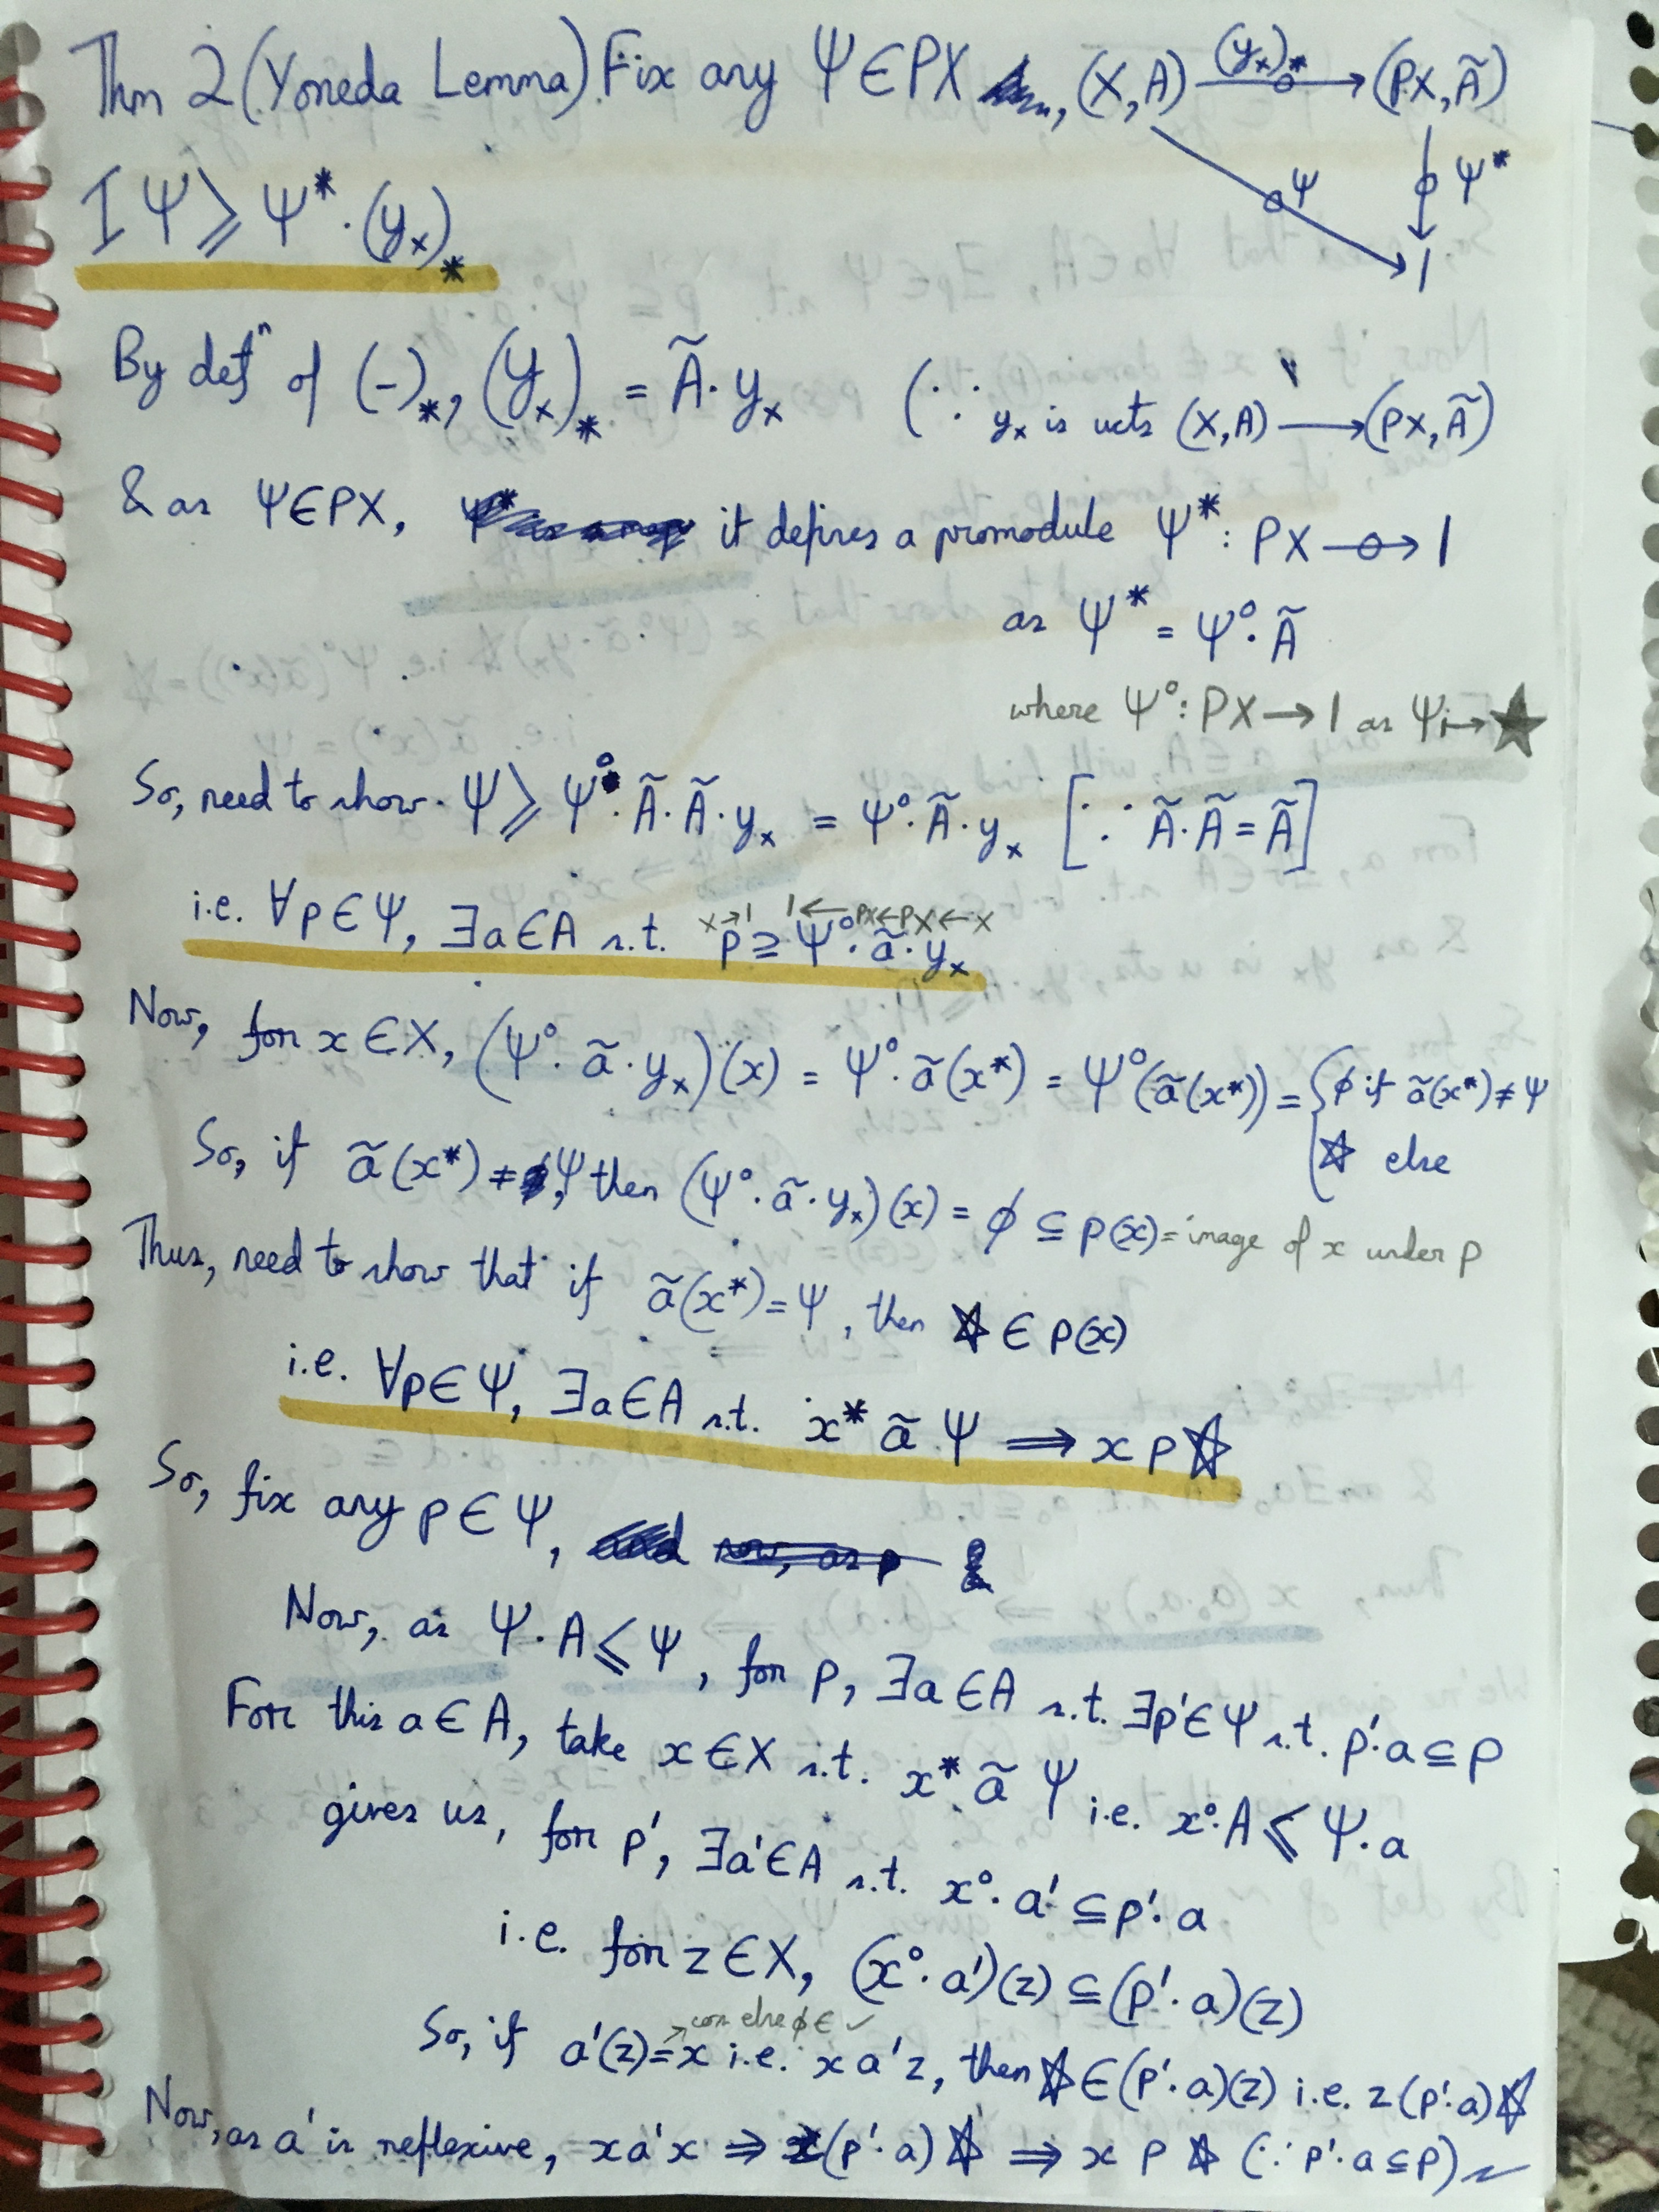 Thm 2 (Yoneda Lemma) Fix any Ψ∈PX, (X,A) —(y_x)_*→ (PX,Ã)
Ψ Ψ*
1
I Ψ ≥ Ψ*·(y_x)_*
By defⁿ of (-)_*, (y_x)_* = Ã·y_x (∵ y_x is ucts (X,A) → (PX,Ã)
& as Ψ∈PX, it defines a promodule Ψ* : PX —o→ 1
as Ψ* = Ψ°·Ã
where Ψ° : PX → 1 as Ψ ↦ ★
So, need to show · Ψ ≥ Ψ°·Ã·Ã·y_x = Ψ°·Ã·y_x [∵ Ã·Ã = Ã]
i.e. ∀p∈Ψ, ∃a∈A s.t. p ⊇ Ψ°·ã·y_x
X→1 1←PX←PX←X
Now, for x∈X, (Ψ°·ã·y_x)(x) = Ψ°·ã(x*) = Ψ°(ã(x*)) = { ϕ if ã(x*) ≠ Ψ
☆ else
So, if ã(x*) ≠ Ψ, then (Ψ°·ã·y_x)(x) = ϕ ⊆ p(x) = image of x under p
Thus, need to show that if ã(x*) = Ψ, then ☆ ∈ p(x)
i.e. ∀p∈Ψ, ∃a∈A s.t. x* ã Ψ ⟹ x p ☆
So, fix any p∈Ψ,
Now, as Ψ·A ≤ Ψ, for p, ∃a∈A s.t. ∃p'∈Ψ s.t. p'·a ⊆ p
For this a∈A, take x∈X s.t. x* ã Ψ i.e. x°·A ≤ Ψ·a
gives us, for p', ∃a'∈A s.t. x°·a' ⊆ p'·a
i.e. for z∈X, (x°·a')(z) ⊆ (p'·a)(z)
So, if a'(z) = x i.e. x a' z, then ☆ ∈ (p'·a)(z) i.e. z (p'·a) ☆
else ϕ ∈ ✓
Now, as a' is reflexive, x a' x ⟹ x (p'·a) ☆ ⟹ x p ☆ (∵ p'·a ⊆ p)